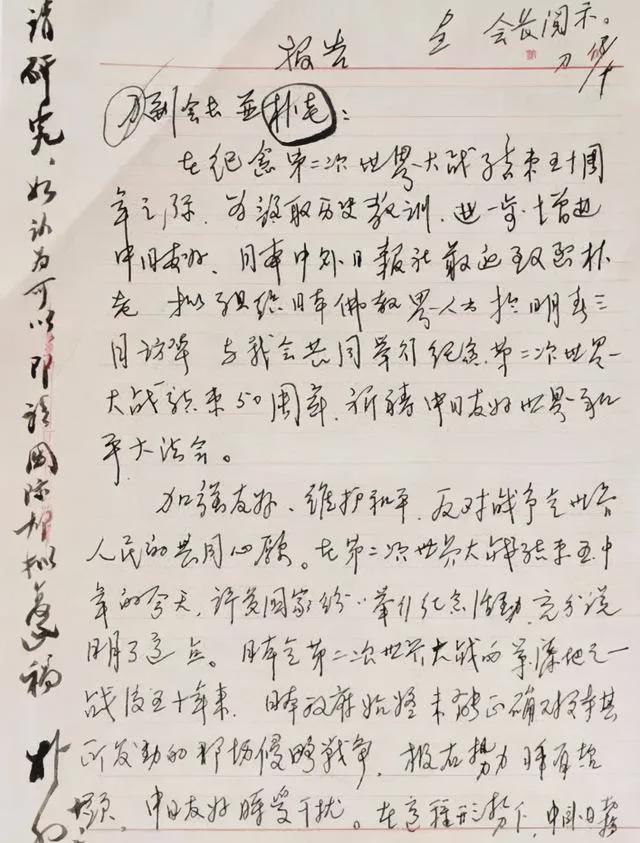 呈 会长阅示。
刀
报告
刀副会长并朴老：
在纪念第二次世界大战结束五十周
年之际，为汲取历史教训，进一步增进
中日友好，日本中外日报社最近致函朴
老 拟组织日本佛教界人士于明春三
月访华 与我会共同举行纪念第二次世界
大战结束50周年，祈祷中日友好世界和
平大法会。
加强友好、维护和平、反对战争是世界
人民的共同心愿。在第二次世界大战结束五十
年的今天，许多国家纷纷举行纪念活动，充分说
明了这点。日本是第二次世界大战的策源地之一
战后五十年来，日本政府始终未能正确对待其
所发动的那场侵略战争，极右势力时有抬
头，中日友好时受干扰。在这种形势下，中外日报
请研究，如认为可以，即请国际部拟复稿
朴